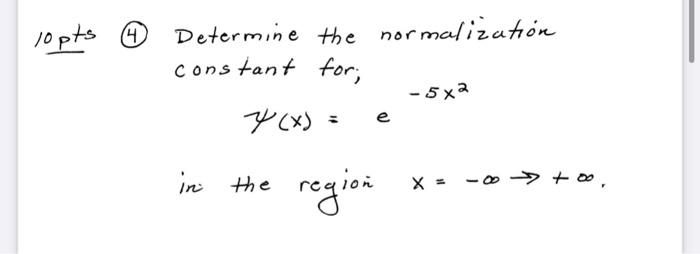 10pts ④ Determine the normalization
constant for;
ψ(x) = e^-5x²
in the region x = -∞ → +∞.